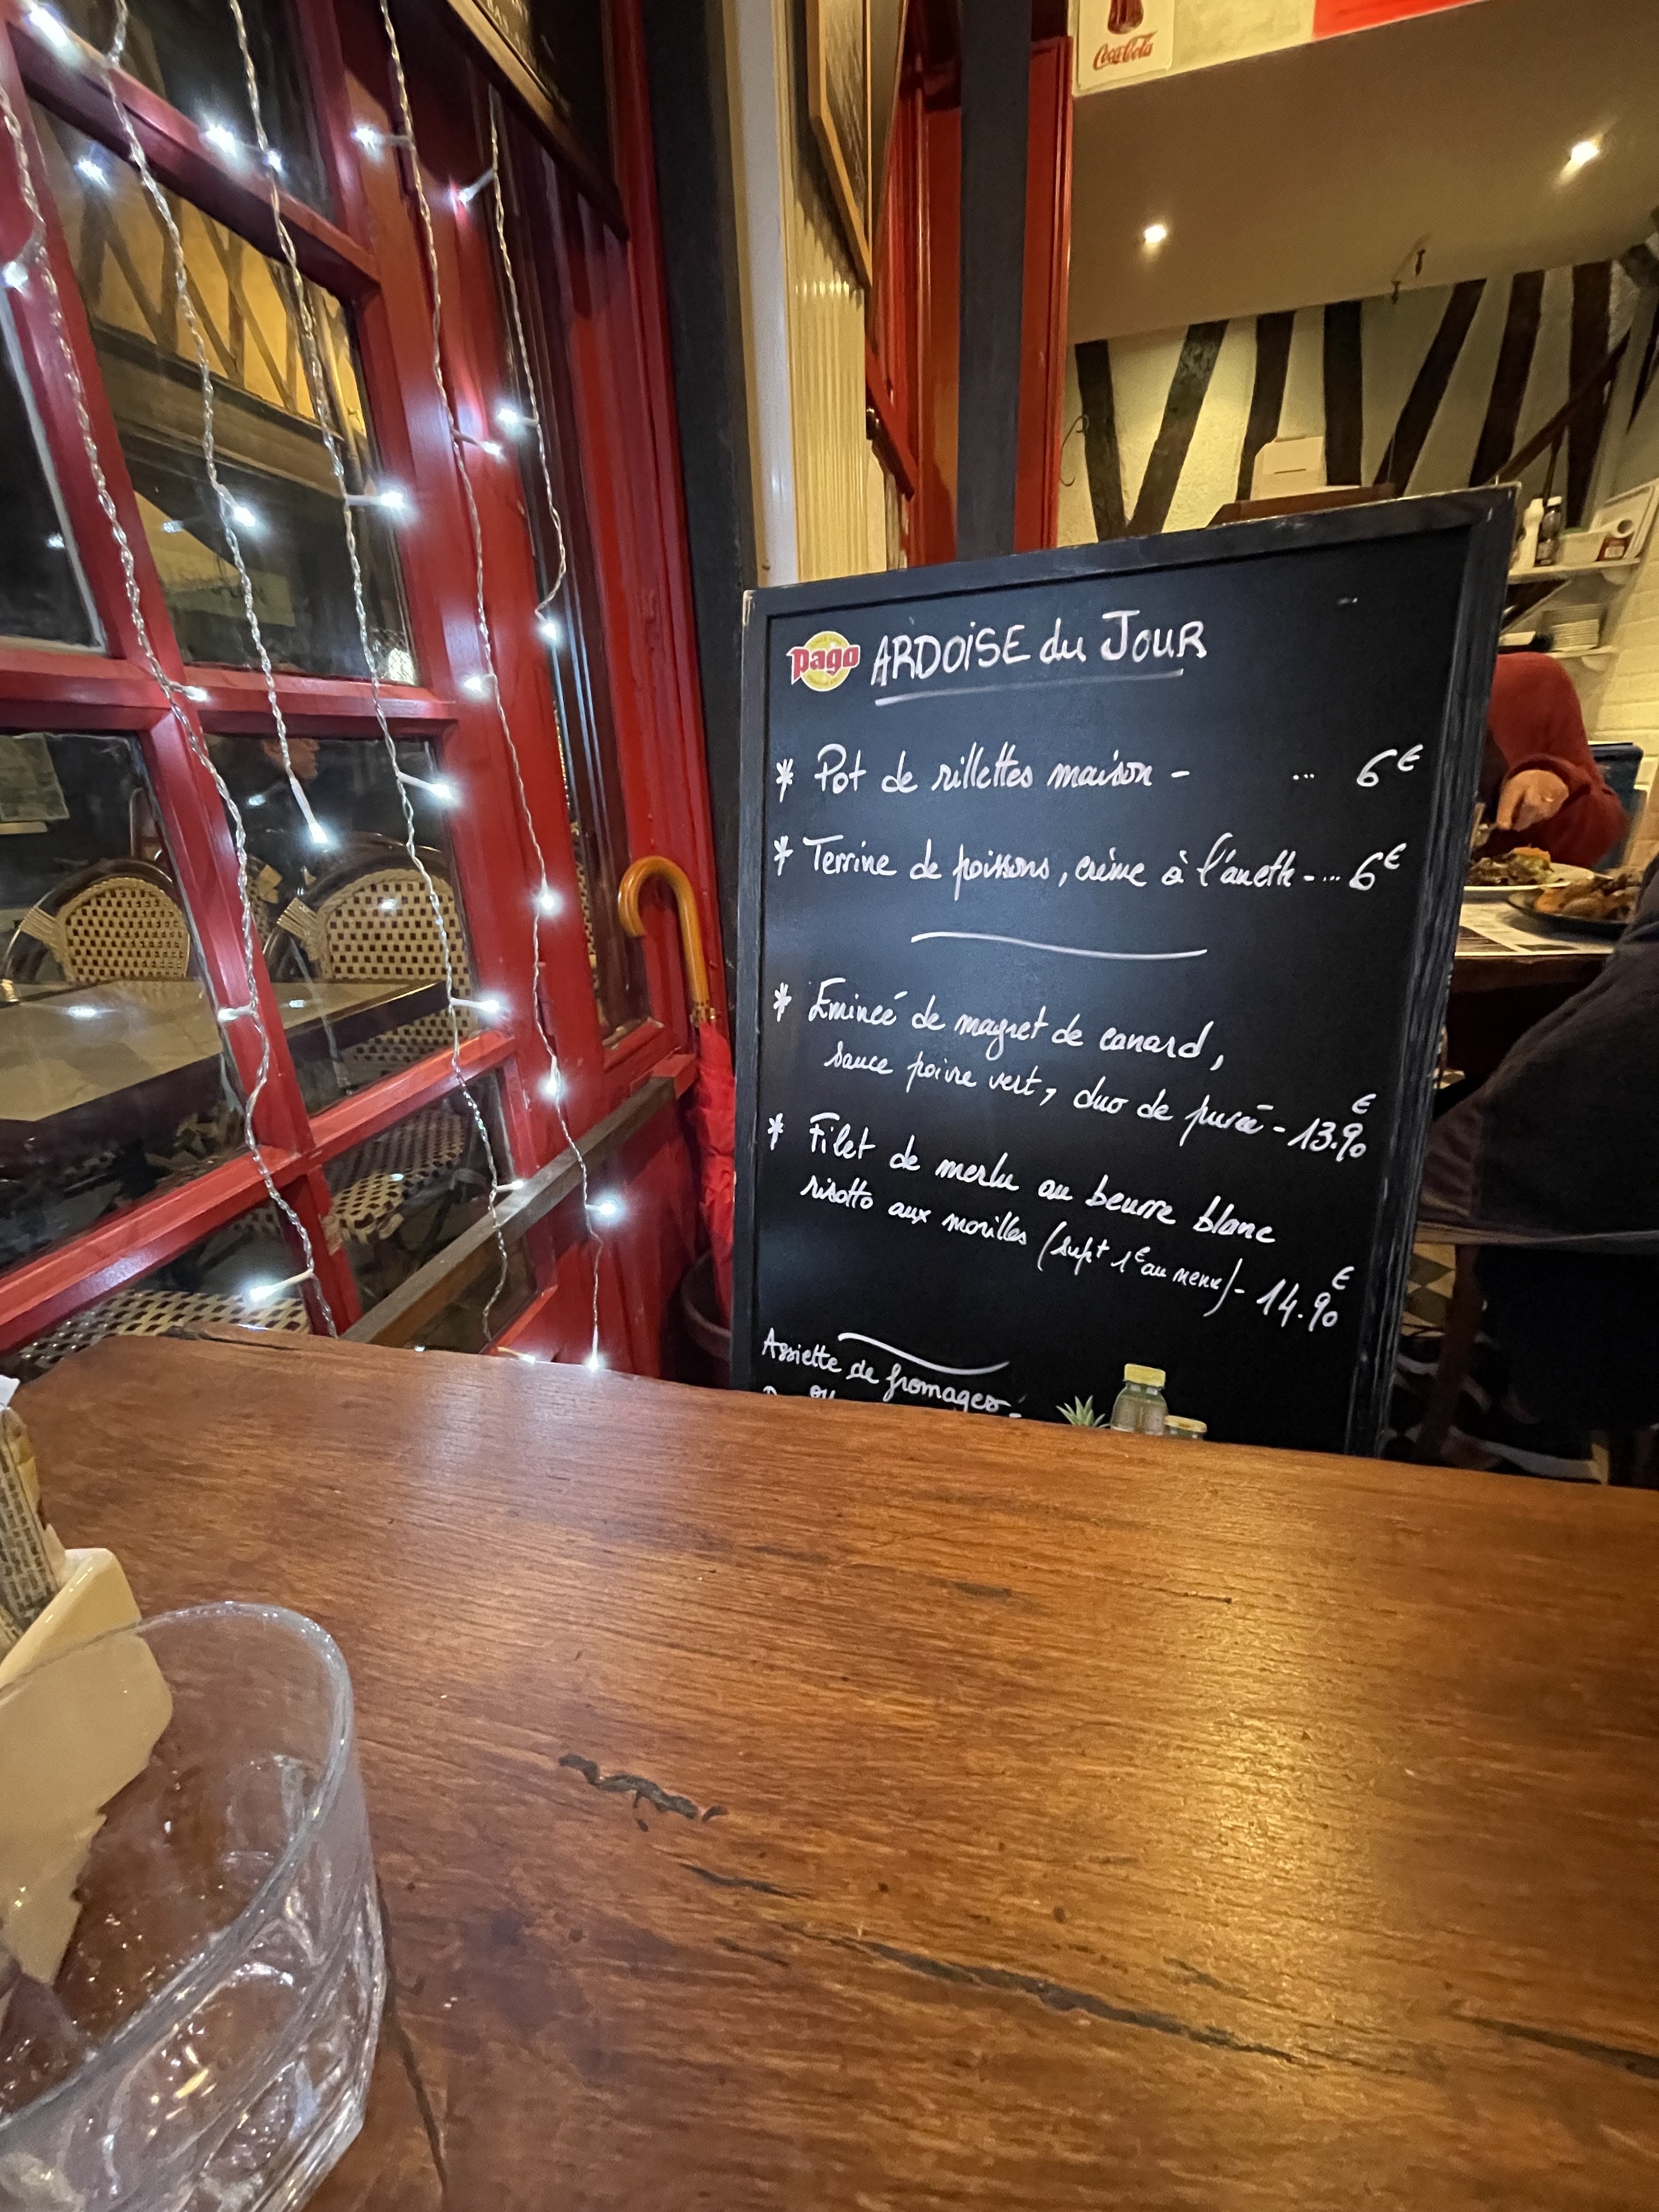 Coca-Cola
pago ARDOISE du JOUR
* Pot de rillettes maison - ... 6€
* Terrine de poissons, crème à l'aneth - ... 6€
* Emincé de magret de canard,
sauce poivre vert, duo de purée - 13.90€
* Filet de merlu au beurre blanc
risotto aux morilles (supt 1€ au menu) - 14.90€
Assiette de fromages :